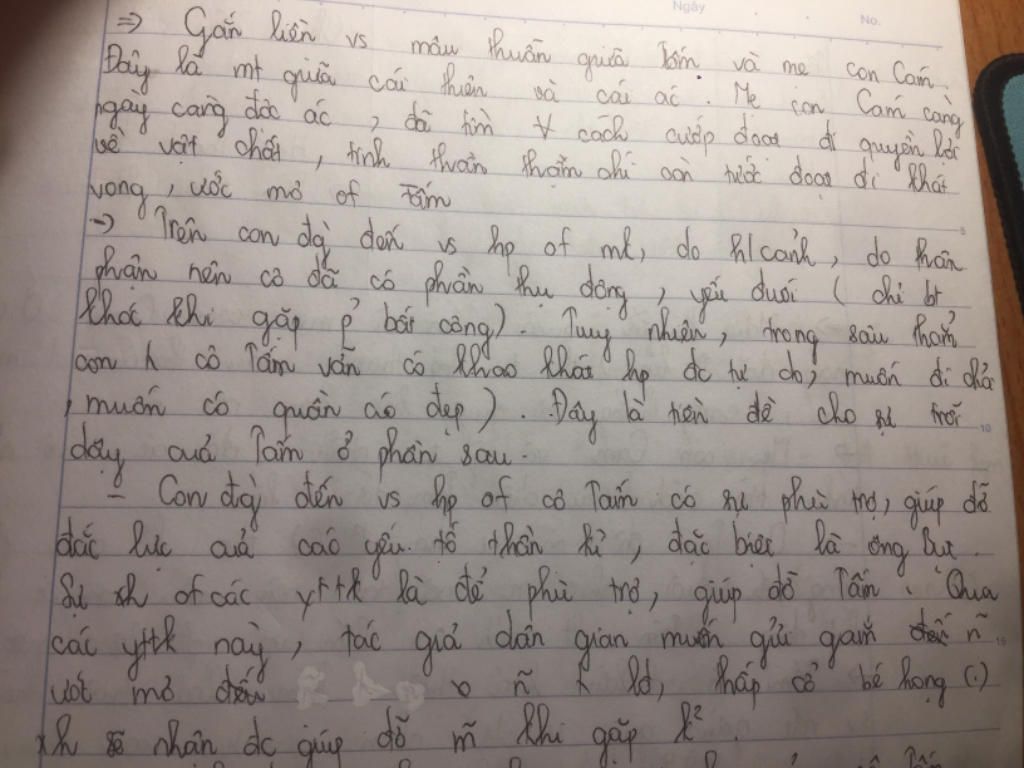 Ngày No.
⇒ Gắn liền vs mâu thuẫn giữa Tấm và mẹ con Cám.
Đây là mt giữa cái thiện và cái ác. Mẹ con Cám càng
ngày càng độc ác, đã tìm ∀ cách cướp đoạt đi quyền lợi
về vật chất, tinh thần thậm chí còn tước đoạt đi khát
vọng, ước mơ of Tấm
⇒ Trên con đg đến vs hp of mk, do h/cảnh, do thân
phận nên cô đã có phần thụ động, yếu đuối (chỉ bt
khóc khi gặp p̉ bất công). Tuy nhiên, trong sâu thẳm
con ng cô Tấm vẫn có khao khát hp đc tự do, muốn đi chơi
, muốn có quần áo đẹp). Đây là tiền đề cho sự trỗi
dậy của Tấm ở phần sau.
- Con đg đến vs hp of cô Tấm có sự phù trợ, giúp đỡ
đắc lực của các yếu tố thần kì, đặc biệt là ông Bụt.
Sự xh of các yttk là để phù trợ, giúp đỡ Tấm. Qua
các yttk này, tác giả dân gian muốn gửi gắm ñ
ước mơ ñ lđ, thấp cổ bé họng (.)
xh sẽ nhận đc giúp đỡ m̃ khi gặp k².